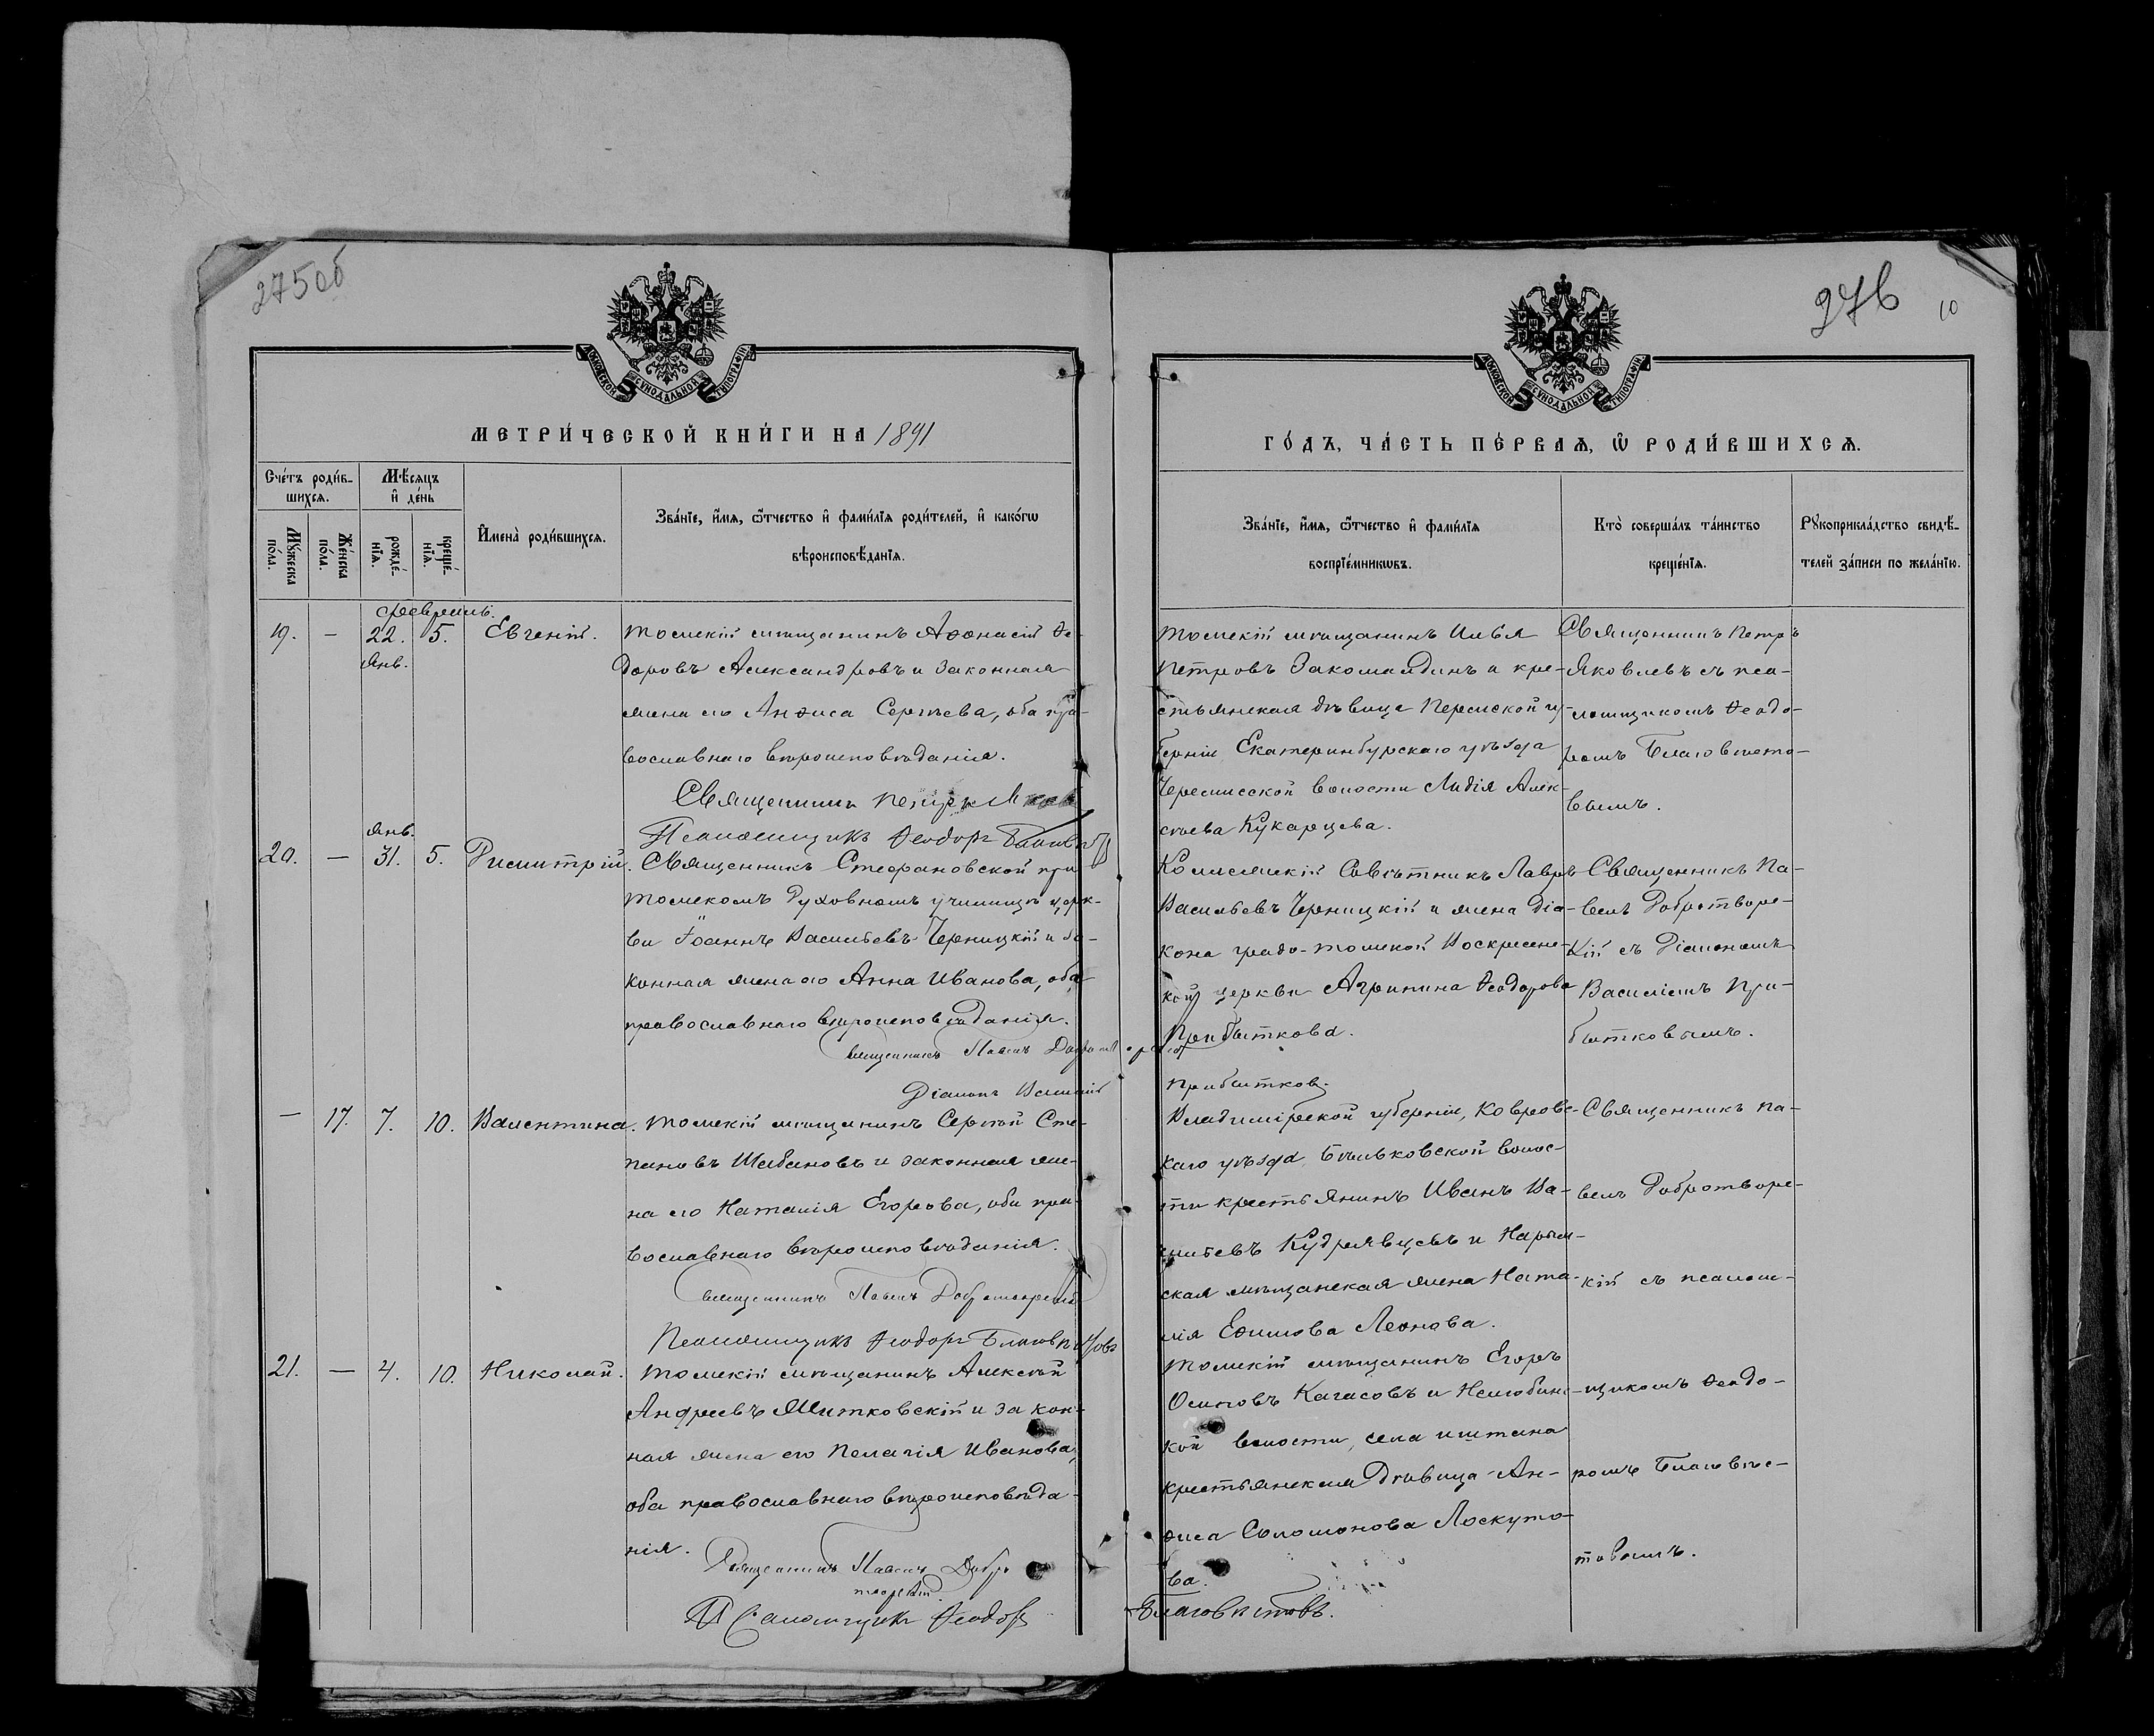 275об
МОСКОВСКОЙ СѴНОДАЛЬНОЙ ТИПОГРАФІИ
МЕТРИ́ЧЕСКОЙ КНИ́ГИ НА 1891
Сче́тъ роди́в-
шихсѧ.
Мѣ́сѧцъ
и҆ де́нь
Мꙋ́жеска
по́ла.
Же́нска
по́ла.
рожде́-
нїѧ.
креще́-
нїѧ.
И҆мена̀ роди́вшихсѧ.
Зва́нїе, и҆́мѧ, ѻ҆́тчество и҆ фами́лїѧ роди́телей, и҆ како́гѡ
вѣроисповѣ́данїѧ.
февраль.
19. — 22. 5. Евгеній. Томскій мѣщанинъ Аѳонасій Ѳе-
Янв.
доровъ Александровъ и законная
жена его Анѳиса Сергѣева, оба пра-
вославнаго вѣроисповѣданія.
Священникъ Петръ Яков
Псаломщикъ Ѳеодоръ
Янв.
20. — 31. 5. Димитрій. Священникъ Стефановской при
Томскомъ Духовномъ училищѣ церк-
ви Іоаннъ Васильевъ Черницкій и за-
конная жена его Анна Иванова, оба
православнаго вѣроисповѣданія.
Священникъ Павелъ
Діаконъ Василій
— 17. 7. 10. Валентина. Томскій мѣщанинъ Сергѣй Сте-
пановъ Шабановъ и законная же-
на его Наталія Егорова, оба пра-
вославнаго вѣроисповѣданія.
Священникъ Павелъ Добротворскій
Псаломщикъ Ѳеодоръ Благовѣстовъ
21. — 4. 10. Николай. Томскій мѣщанинъ Алексѣй
Андреевъ Митковскій и закон-
ная жена его Пелагія Иванова,
оба православнаго вѣроисповѣда-
нія.
Священникъ Павелъ Добро
творскій
Псаломщикъ Ѳеодоръ
276
10
МОСКОВСКОЙ СѴНОДАЛЬНОЙ ТИПОГРАФІИ
ГО́ДЪ, ЧА́СТЬ ПЕ́РВАѦ, Ѡ҆ РОДИ́ВШИХСѦ.
Зва́нїе, и҆́мѧ, ѻ҆́тчество и҆ фами́лїѧ
воспрїе́мникѡвъ.
Кто̀ соверша́лъ та́инство
креще́нїѧ.
Рꙋкоприкла́дство свидѣ́-
телей за́писи по жела́нїю.
Томскій мѣщанинъ Илья
Петровъ Закомалдинъ и кре-
стьянская дѣвица Пермской гу-
берніи Екатеринбургскаго уѣзда
Черемисской волости Лидія Алек-
сѣева Кукарцева.
Священникъ Петръ
Яковлевъ съ пса-
ломщикомъ Ѳеодо-
ромъ Благовѣсто-
вымъ.
Коллежскій Совѣтникъ Лавръ
Васильевъ Черницкій и жена діа-
кона градо-Томской Воскресенс-
кой церкви Агрипина Ѳеодорова
Прибыткова.
Прибытковъ
Священникъ Па-
велъ Добротворс-
кій съ Діакономъ
Василіемъ При-
бытковымъ.
Владимірской губерніи, Ковровс-
каго уѣзда, Бѣльковской волос-
ти крестьянинъ Иванъ Ва-
сильевъ Кудрявцевъ и Нарым-
ская мѣщанская жена Ната-
лія Ефимова Леонова.
Священникъ Па-
велъ Добротворс-
кій съ псалом-
Томскій мѣщанинъ Егоръ
Осиповъ Кагасовъ и Нелюбинс-
кой волости, села Иштана
крестьянская дѣвица Ан-
фиса Соломонова Лоскуто-
ва.
щикомъ Ѳеодо-
ромъ Благовѣс-
товымъ.
Благовѣстовъ.